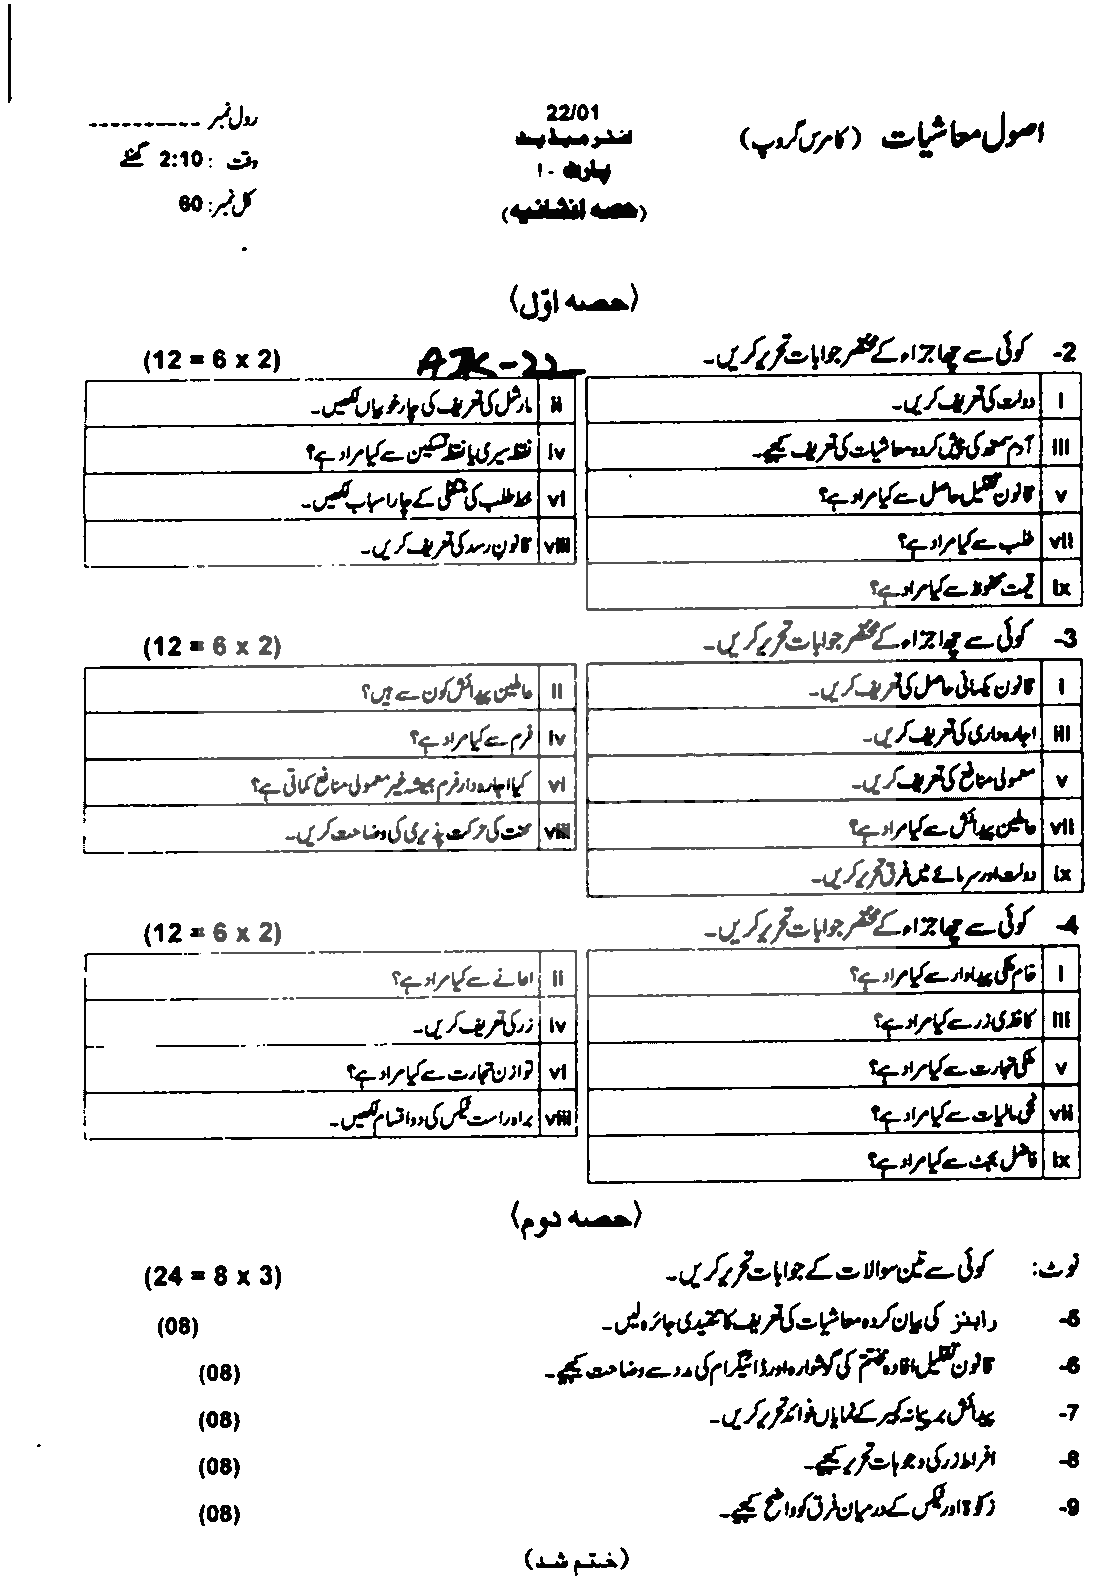 اصول معاشیات (کامرس گروپ)
22/01
انٹرمیڈیٹ
پارٹ - ۱
(حصہ انشائیہ)
رول نمبر -----------
وقت : 2:10 گھنٹے
کل نمبر: 60
(حصہ اوّل)
2- کوئی سے چھ اجزاء کے مختصر جوابات تحریر کریں۔ AJK-22 (12 = 6 x 2)
i دولت کی تعریف کریں۔ ii مارشل کی تعریف کی چار خوبیاں لکھیں۔
iii آدم سمتھ کی پیش کردہ معاشیات کی تعریف کیجیے۔ iv نقطہ سیری یا نقطہ تسکین سے کیا مراد ہے؟
v قانون تقلیل حاصل سے کیا مراد ہے؟ vi خط طلب کی منفی کے چار اسباب لکھیں۔
vii طلب سے کیا مراد ہے؟ viii قانون رسد کی تعریف کریں۔
ix قیمت محفوظ سے کیا مراد ہے؟
3- کوئی سے چھ اجزاء کے مختصر جوابات تحریر کریں۔ (12 = 6 x 2)
i قانون یکسانی حاصل کی تعریف کریں۔ ii عاملین پیدائش کون سے ہیں؟
iii اجارہ داری کی تعریف کریں۔ iv فرم سے کیا مراد ہے؟
v معمولی منافع کی تعریف کریں۔ vi کیا اجارہ دار فرم ہمیشہ غیر معمولی منافع کماتی ہے؟
vii عاملین پیدائش سے کیا مراد ہے؟ viii محنت کی حرکت پذیری کی وضاحت کریں۔
ix دولت اور سرمائے میں فرق تحریر کریں۔
4- کوئی سے چھ اجزاء کے مختصر جوابات تحریر کریں۔ (12 = 6 x 2)
i خام ملکی پیداوار سے کیا مراد ہے؟ ii اعانے سے کیا مراد ہے؟
iii کاغذی زر سے کیا مراد ہے؟ iv زر کی تعریف کریں۔
v ملکی تجارت سے کیا مراد ہے؟ vi توازن تجارت سے کیا مراد ہے؟
vii نجی مالیات سے کیا مراد ہے؟ viii براہ راست ٹیکس کی دو اقسام لکھیں۔
ix فاضل بجٹ سے کیا مراد ہے؟
(حصہ دوم)
نوٹ: کوئی سے تین سوالات کے جوابات تحریر کریں۔ (24 = 8 x 3)
5- رابنز کی بیان کردہ معاشیات کی تعریف کا تنقیدی جائزہ لیں۔ (08)
6- قانون تقلیل افادہ مختتم کی گوشوارہ اور ڈائیگرام کی مدد سے وضاحت کیجیے۔ (08)
7- پیدائش بر پیمانہ کبیر کے نمایاں فوائد تحریر کریں۔ (08)
8- افراط زر کی وجوہات تحریر کیجیے۔ (08)
9- زکوٰۃ اور ٹیکس کے درمیان فرق کو واضح کیجیے۔ (08)
(ختم شد)